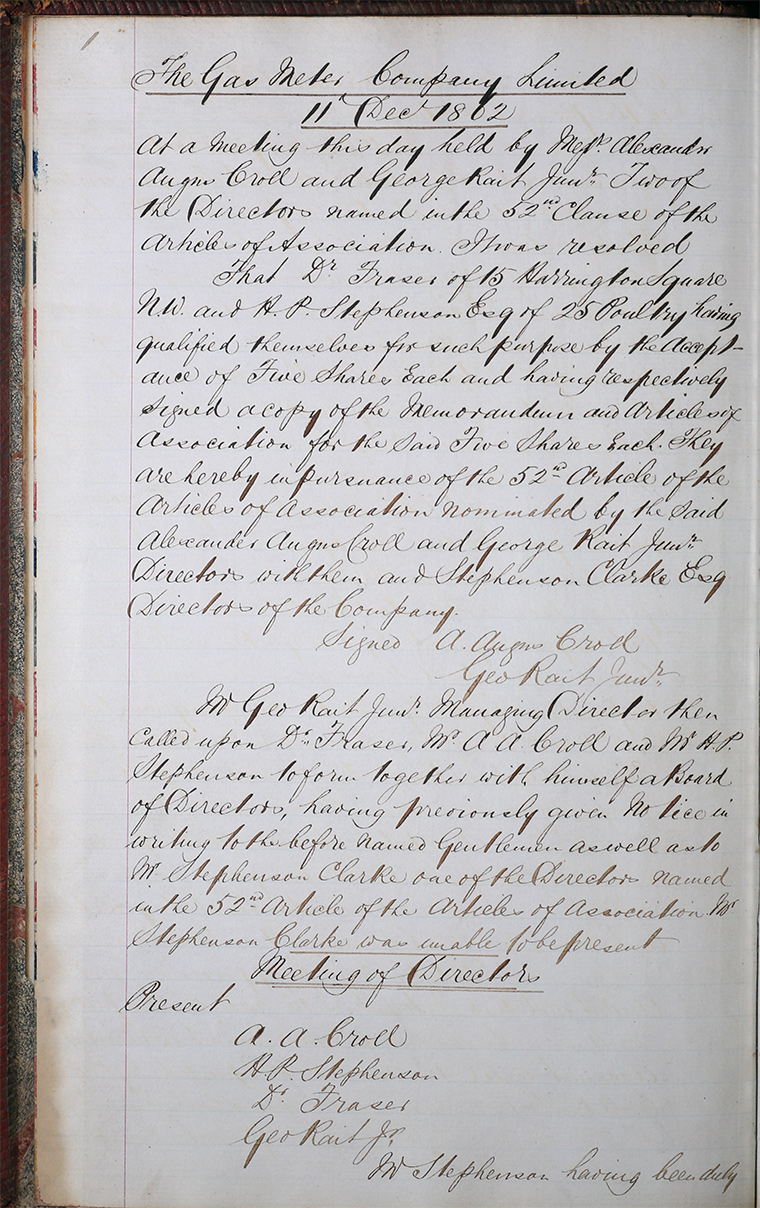 1
The Gas Meter Company Limited
11th Decr 1862
At a meeting this day held by Messrs Alexander
Angus Croll and George Rait Junr Two of
the Directors named in the 52nd Clause of the
Articles of Association. It was resolved
That Dr Fraser of 15 Harrington Square
N.W. and H. P. Stephenson Esq of 25 Poultry having
qualified themselves for such purpose by the Accept-
ance of Five Shares Each and having respectively
signed a copy of the Memorandum and Articles of
Association for the said Five Shares Each. They
are hereby in pursuance of the 52nd Article of the
Articles of Association nominated by the said
Alexander Angus Croll and George Rait Junr
Directors with them and Stephenson Clarke Esq
Directors of the Company.
Signed A. Angus Croll
Geo Rait Junr
Mr Geo Rait Junr Managing Director then
Called upon Dr Fraser, Mr A A. Croll and Mr H. P.
Stephenson to form together with himself a Board
of Directors, having previously given Notice in
writing to the before named Gentlemen as well as to
Mr Stephenson Clarke one of the Directors named
in the 52nd Article of the Articles of Association. Mr
Stephenson Clarke was unable to be present
Meeting of Directors
Present
A. A. Croll
H. P. Stephenson
Dr Fraser
Geo Rait Jr
Mr Stephenson having been duly